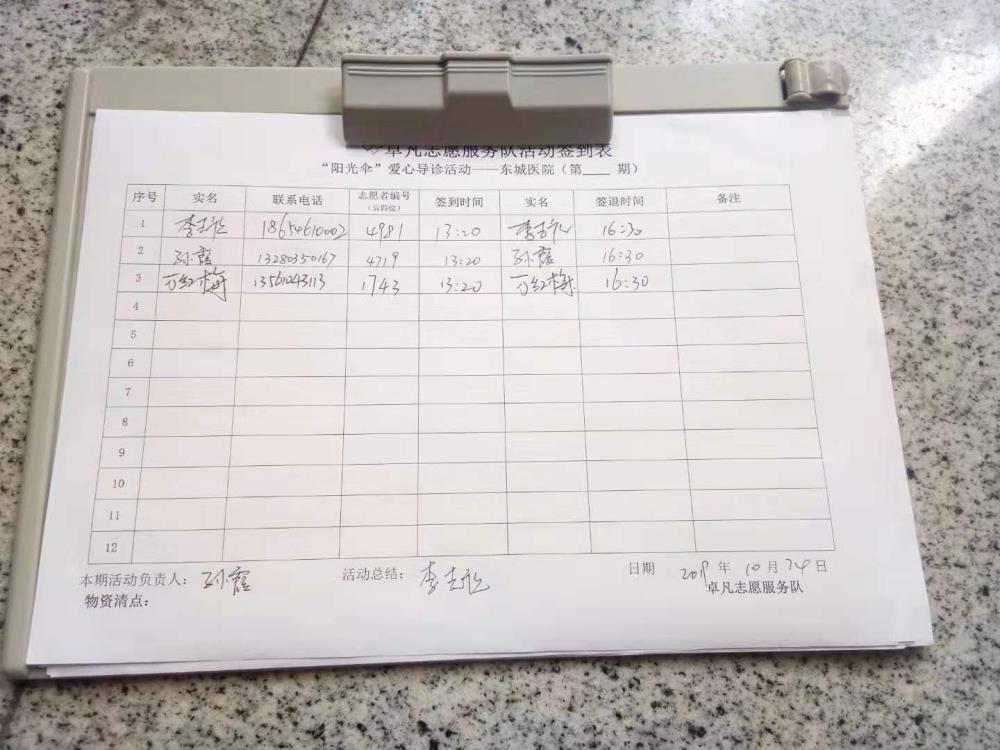 卓凡志愿服务队活动签到表
“阳光伞”爱心导诊活动——东城医院（第____期）
序号 实名 联系电话 志愿者编号（后四位） 签到时间 实名 签退时间 备注
1 李 18654610002 4981 13:20 李 16:30
2 孙霞 13280350167 4719 13:20 孙霞 16:30
3 万红梅 13561043113 1743 13:20 万红梅 16:30
4
5
6
7
8
9
10
11
12
本期活动负责人：孙霞 活动总结：李 日期 年 10 月 24 日
物资清点： 卓凡志愿服务队